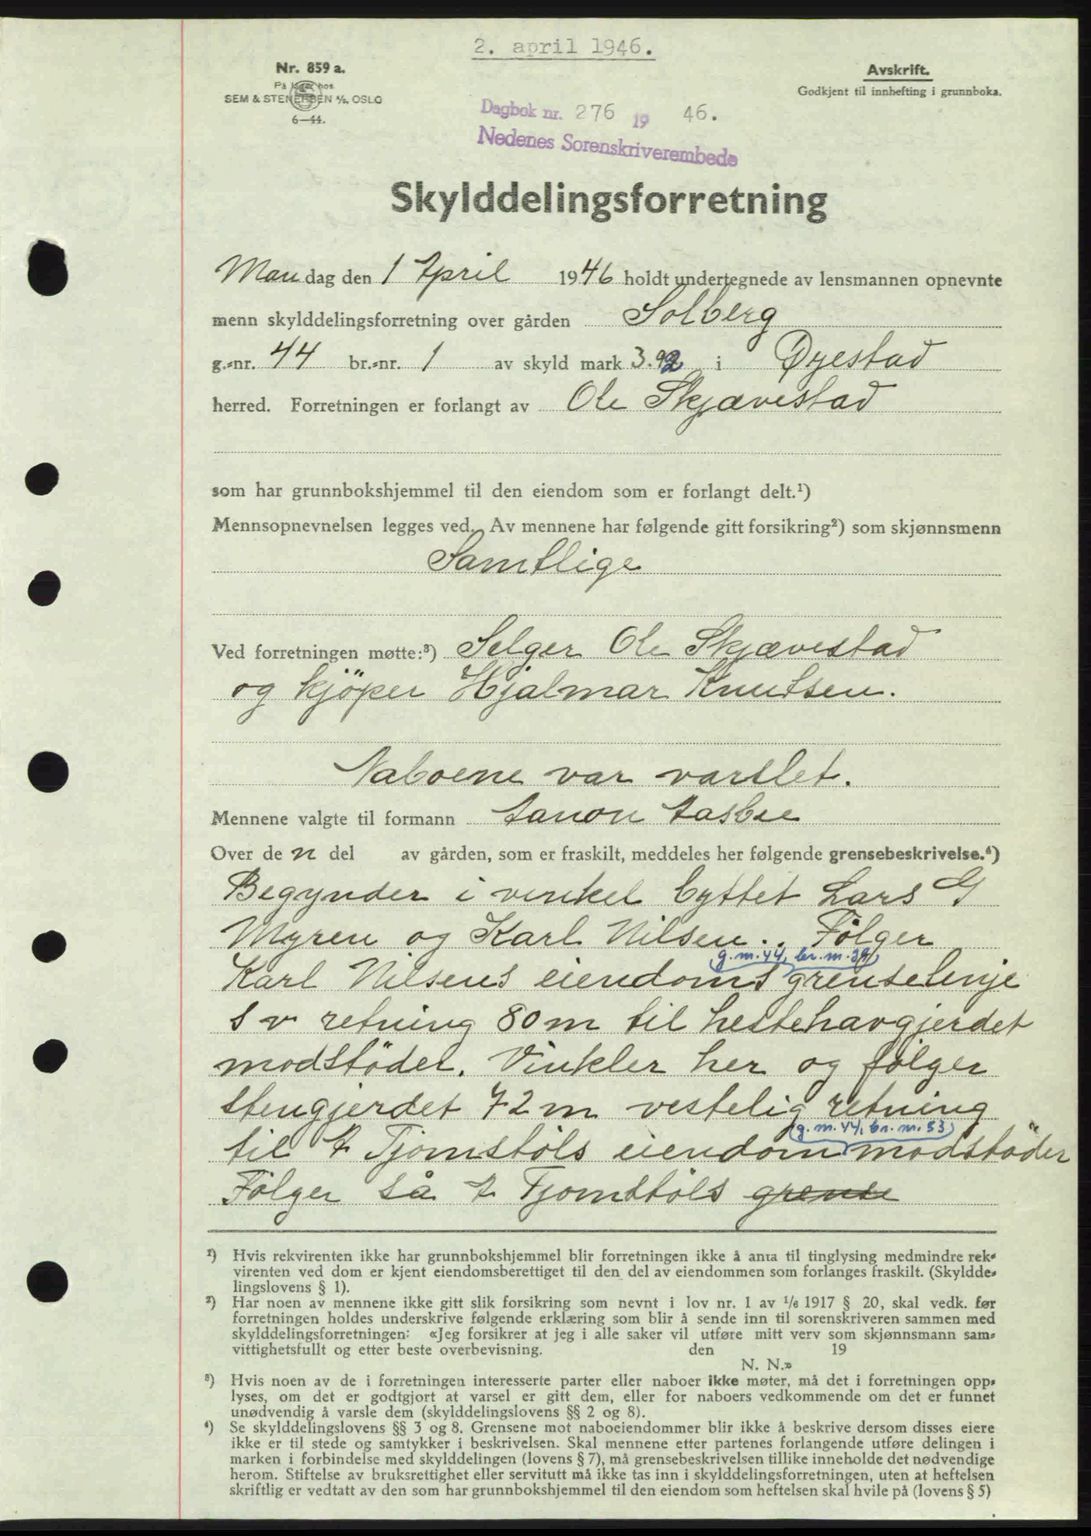 2. april 1946.
Nr. 859 a.
På lager hos
SEM & STENERSEN A/S, OSLO
6—44.
Avskrift.
Godkjent til innhefting i grunnboka.
Dagbok nr. 276 19 46.
Nedenes Sorenskriverembede
Skylddelingsforretning
Mandag den 1 April 1946 holdt undertegnede av lensmannen opnevnte
menn skylddelingsforretning over gården Solberg
g.-nr. 44 br.-nr. 1 av skyld mark 3.92 i Øyestad
herred. Forretningen er forlangt av Ole Skjævestad
som har grunnbokshjemmel til den eiendom som er forlangt delt.¹)
Mennsopnevnelsen legges ved. Av mennene har følgende gitt forsikring²) som skjønnsmenn
Samtlige
Ved forretningen møtte:³) Selger Ole Skjævestad
og kjöper Hjalmar Knutsen.
Naboene var varslet.
Mennene valgte til formann
Over de n del av gården, som er fraskilt, meddeles her følgende grensebeskrivelse.⁴)
Begynder i vinkel byttet Lars G
Myren og Karl Nilsen. Følger
g.nr. 44, br.nr. 39
Karl Nilsens eiendoms grenselinje
s v retning 80 m til hestehavgjerdet
modstöder. Vinkler her og følger
stengjerdet 72 m vestelig retning
g.nr. 44, br.nr. 53
til T Tjomstöls eiendom modstöder
Følger så T Tjomstöls grense
¹) Hvis rekvirenten ikke har grunnbokshjemmel blir forretningen ikke å anta til tinglysing medmindre rek-
virenten ved dom er kjent eiendomsberettiget til den del av eiendommen som forlanges fraskilt. (Skyldde-
lingslovens § 1).
²) Har noen av mennene ikke gitt slik forsikring som nevnt i lov nr. 1 av 1/6 1917 § 20, skal vedk. før
forretningen holdes underskrive følgende erklæring som blir å sende inn til sorenskriveren sammen med
skylddelingsforretningen: «Jeg forsikrer at jeg i alle saker vil utføre mitt verv som skjønnsmann sam-
vittighetsfullt og etter beste overbevisning. den 19
N. N.»
³) Hvis noen av de i forretningen interesserte parter eller naboer ikke møter, må det i forretningen opp-
lyses, om det er godtgjort at varsel er gitt dem, eller for naboers vedkommende om det er funnet
unødvendig å varsle dem (skylddelingslovens §§ 2 og 8).
⁴) Se skylddelingslovens §§ 3 og 8. Grensene mot naboeiendommer blir ikke å beskrive dersom disses eiere
ikke er til stede og samtykker i beskrivelsen. Skal mennene etter partenes forlangende utføre delingen i
marken i forbindelse med skylddelingen (lovens § 7), må grensebeskrivelsen tillike inneholde det nødvendige
herom. Stiftelse av bruksrettighet eller servitutt må ikke tas inn i skylddelingsforretningen, uten at heftelsen
skriftlig er vedtatt av den som har grunnbokshjemmel til den eiendom som heftelsen skal hvile på (lovens § 5)